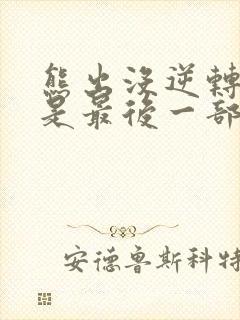 熊出沒逆轉
是最後一部
安德魯斯科特